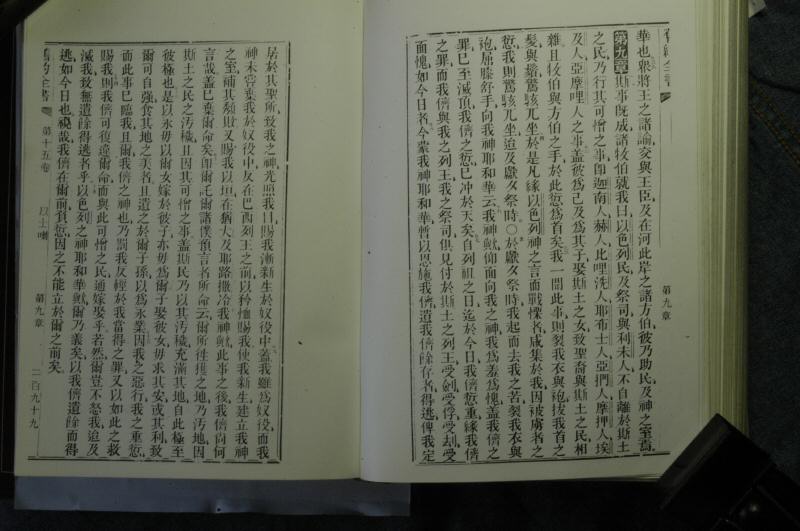 舊約全書
第九章
華也眾將王之諸諭交與王臣及在河此岸之諸方伯彼乃助民及神之室焉
第九章斯事旣成諸牧伯就我曰以色列民及祭司與利未人不自離於斯土
之民乃行其可憎之事卽迦南人赫人比哩洗人耶布士人亞捫人摩押人埃
及人亞摩哩人之事蓋彼爲己及爲其子娶斯土之女致聖裔與斯土之民相
雜且牧伯與方伯之手於此愆爲首矣我一聞此事則裂我衣與袍拔我首之
髮與鬚驚駭兀坐於是凡緣以色列神之言而戰慄者咸集於我因被虜者之
愆我則驚駭兀坐迨及獻夕祭時〇於獻夕祭時我起而去我之苦裂我衣與
袍屈膝舒手向我神耶和華云我神歟仰面向我之神我爲羞爲愧蓋我儕之
罪已至滅頂我儕之愆已冲於天矣自列祖之日迄於今日我儕愆重緣我儕
之罪而我儕與我之列王我之祭司俱見付於斯土之列王受劍受俘受刦受
面愧如今日者今蒙我神耶和華暫以恩施我儕遺我儕餘存者得逃俾我定
居於其聖所致我之神光照我目賜我漸甦生於奴役中蓋我雖爲奴役而我
神未嘗棄我於奴役中反在巴西列王之前以矜憮賜我使我甦生建立我神
之室補其頽敗又賜我以垣在猶大及耶路撒冷我神歟此事之後我儕尙何
言哉蓋已棄爾命矣卽爾託爾諸僕預言者所命云爾所往獲之地乃汚地因
斯土之民之汚穢且因其可憎之事蓋斯民乃以其汚穢充滿其地自此極至
彼極也是以永毋以爾女嫁於彼子亦毋爲爾子娶彼女毋求其安或其利致
爾可自強食其地之美者且遺之於爾子孫以爲永業因我之惡行我之重愆
而此事已臨我且爾我儕之神也乃罰我反輕於我當得之罪又以如此之救
賜我則我儕可復違爾命而與此可憎之民通嫁娶乎若然爾豈不怒我迨及
滅我致無遺餘得逃者乎以色列之神耶和華歟爾乃義矣以我儕遺餘而得
逃如今日也視哉我儕在爾前負愆因之不能立於爾之前矣
舊約全書
第十五卷
以士喇
第九章
二百九十九